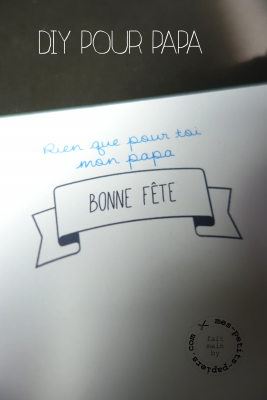 DIY POUR PAPA
Rien que pour toi
mon papa
BONNE FÊTE
mes-petits-papiers.com
fait
main
by